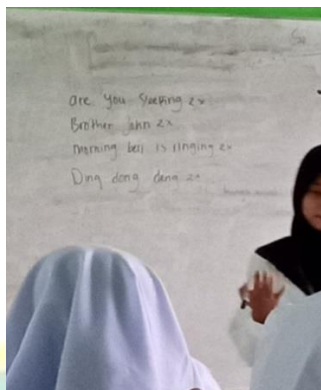 are you sleeping 2x
Brother John 2x
morning bell is ringing 2x
Ding dong dang 2x